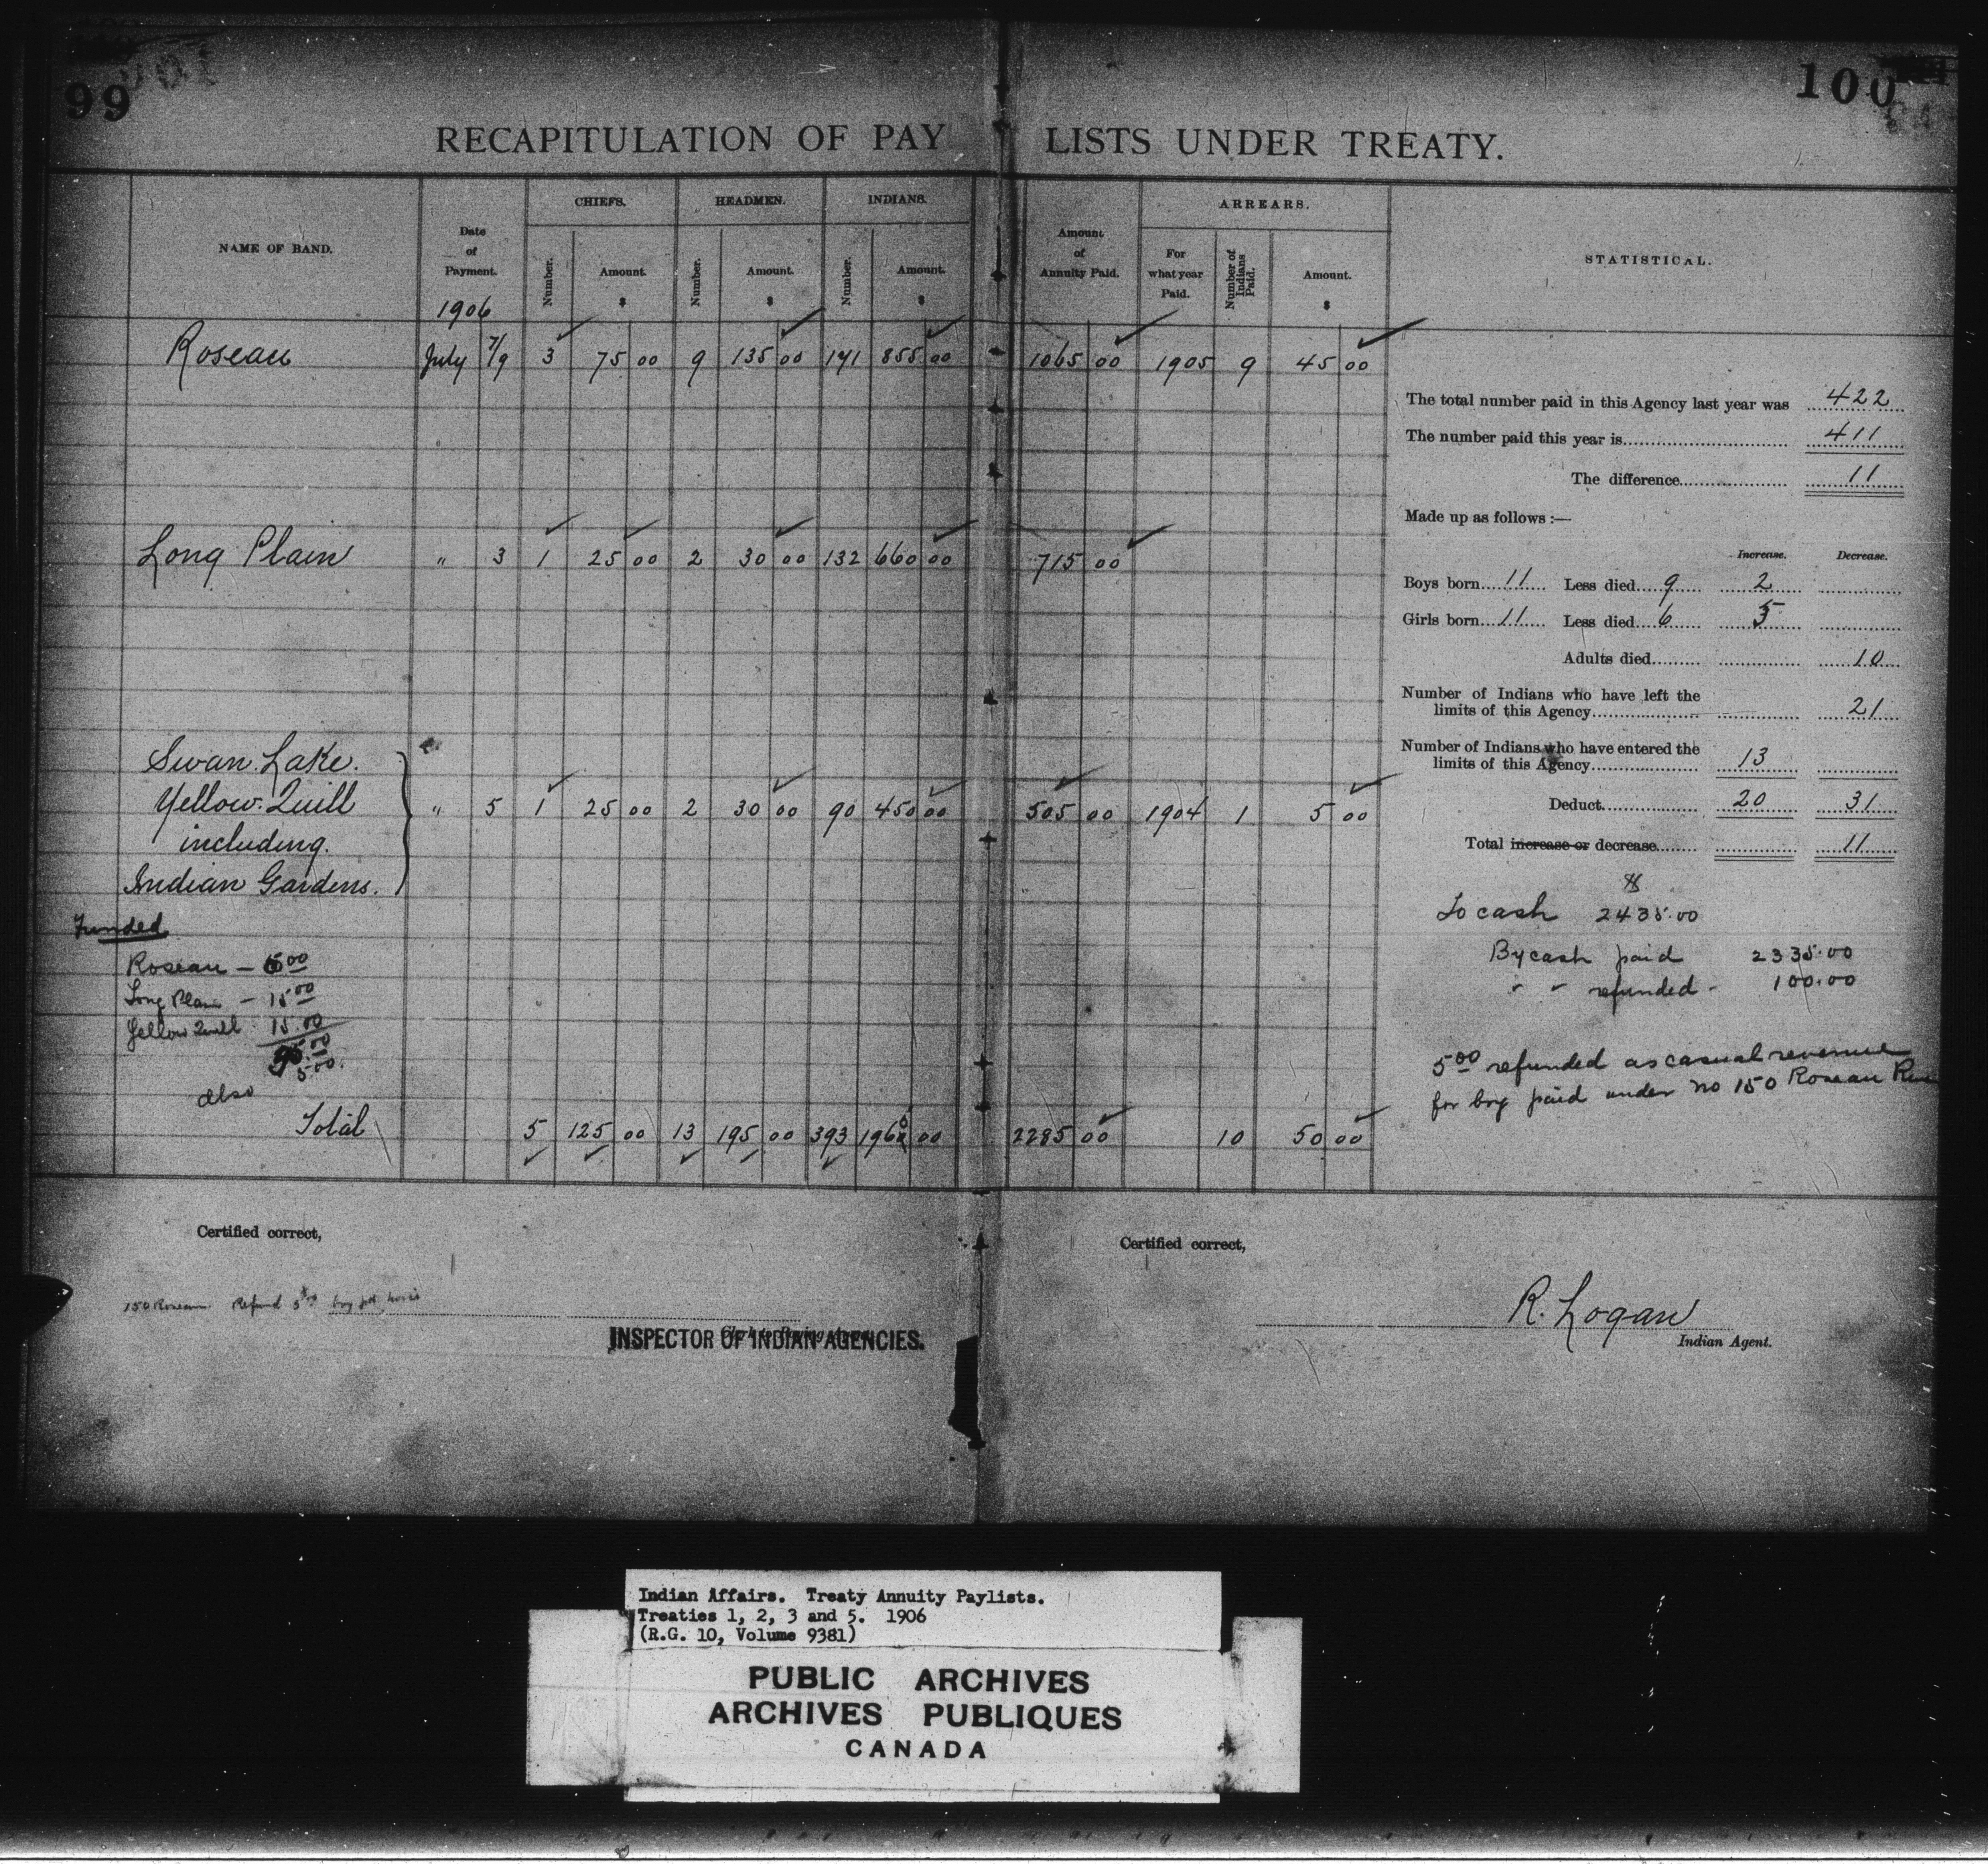 99
100
RECAPITULATION OF PAY LISTS UNDER TREATY.
NAME OF BAND. Date of Payment. CHIEFS. HEADMEN. INDIANS. Amount of Annuity Paid. ARREARS. STATISTICAL.
Number. Amount. $ Number. Amount. $ Number. Amount. $ For what year Paid. Number of Indians Paid. Amount. $
1906
Roseau July 7/9 3 75 00 9 135 00 171 855 00 1065 00 1905 9 45 00
Long Plain " 3 1 25 00 2 30 00 132 660 00 715 00
Swan Lake.
Yellow Quill " 5 1 25 00 2 30 00 90 450 00 505 00 1904 1 5 00
including.
Indian Gardens.
Funded
Roseau –
Long Plain – 15 00
Yellow Quill 15.00
5.00.
also
Total 5 125 00 13 195 00 393 00 2285 00 10 50 00
The total number paid in this Agency last year was 422
The number paid this year is 411
The difference 11
Made up as follows :—
Increase. Decrease.
Boys born 11 Less died 9 2
Girls born 11 Less died 6 5
Adults died 10
Number of Indians who have left the
limits of this Agency 21
Number of Indians who have entered the
limits of this Agency 13
Deduct 20 31
Total increase or decrease 11
To cash 2435.00
By cash paid 2335.00
" " refunded - 100.00
5 00 refunded as casual revenue
for boy paid under no 150 Roseau
Certified correct,
150 Roseau Refund
INSPECTOR OF INDIAN AGENCIES.
Certified correct,
R. Logan
Indian Agent.
Indian Affairs. Treaty Annuity Paylists.
Treaties 1, 2, 3 and 5. 1906
(R.G. 10, Volume 9381)
PUBLIC ARCHIVES
ARCHIVES PUBLIQUES
CANADA